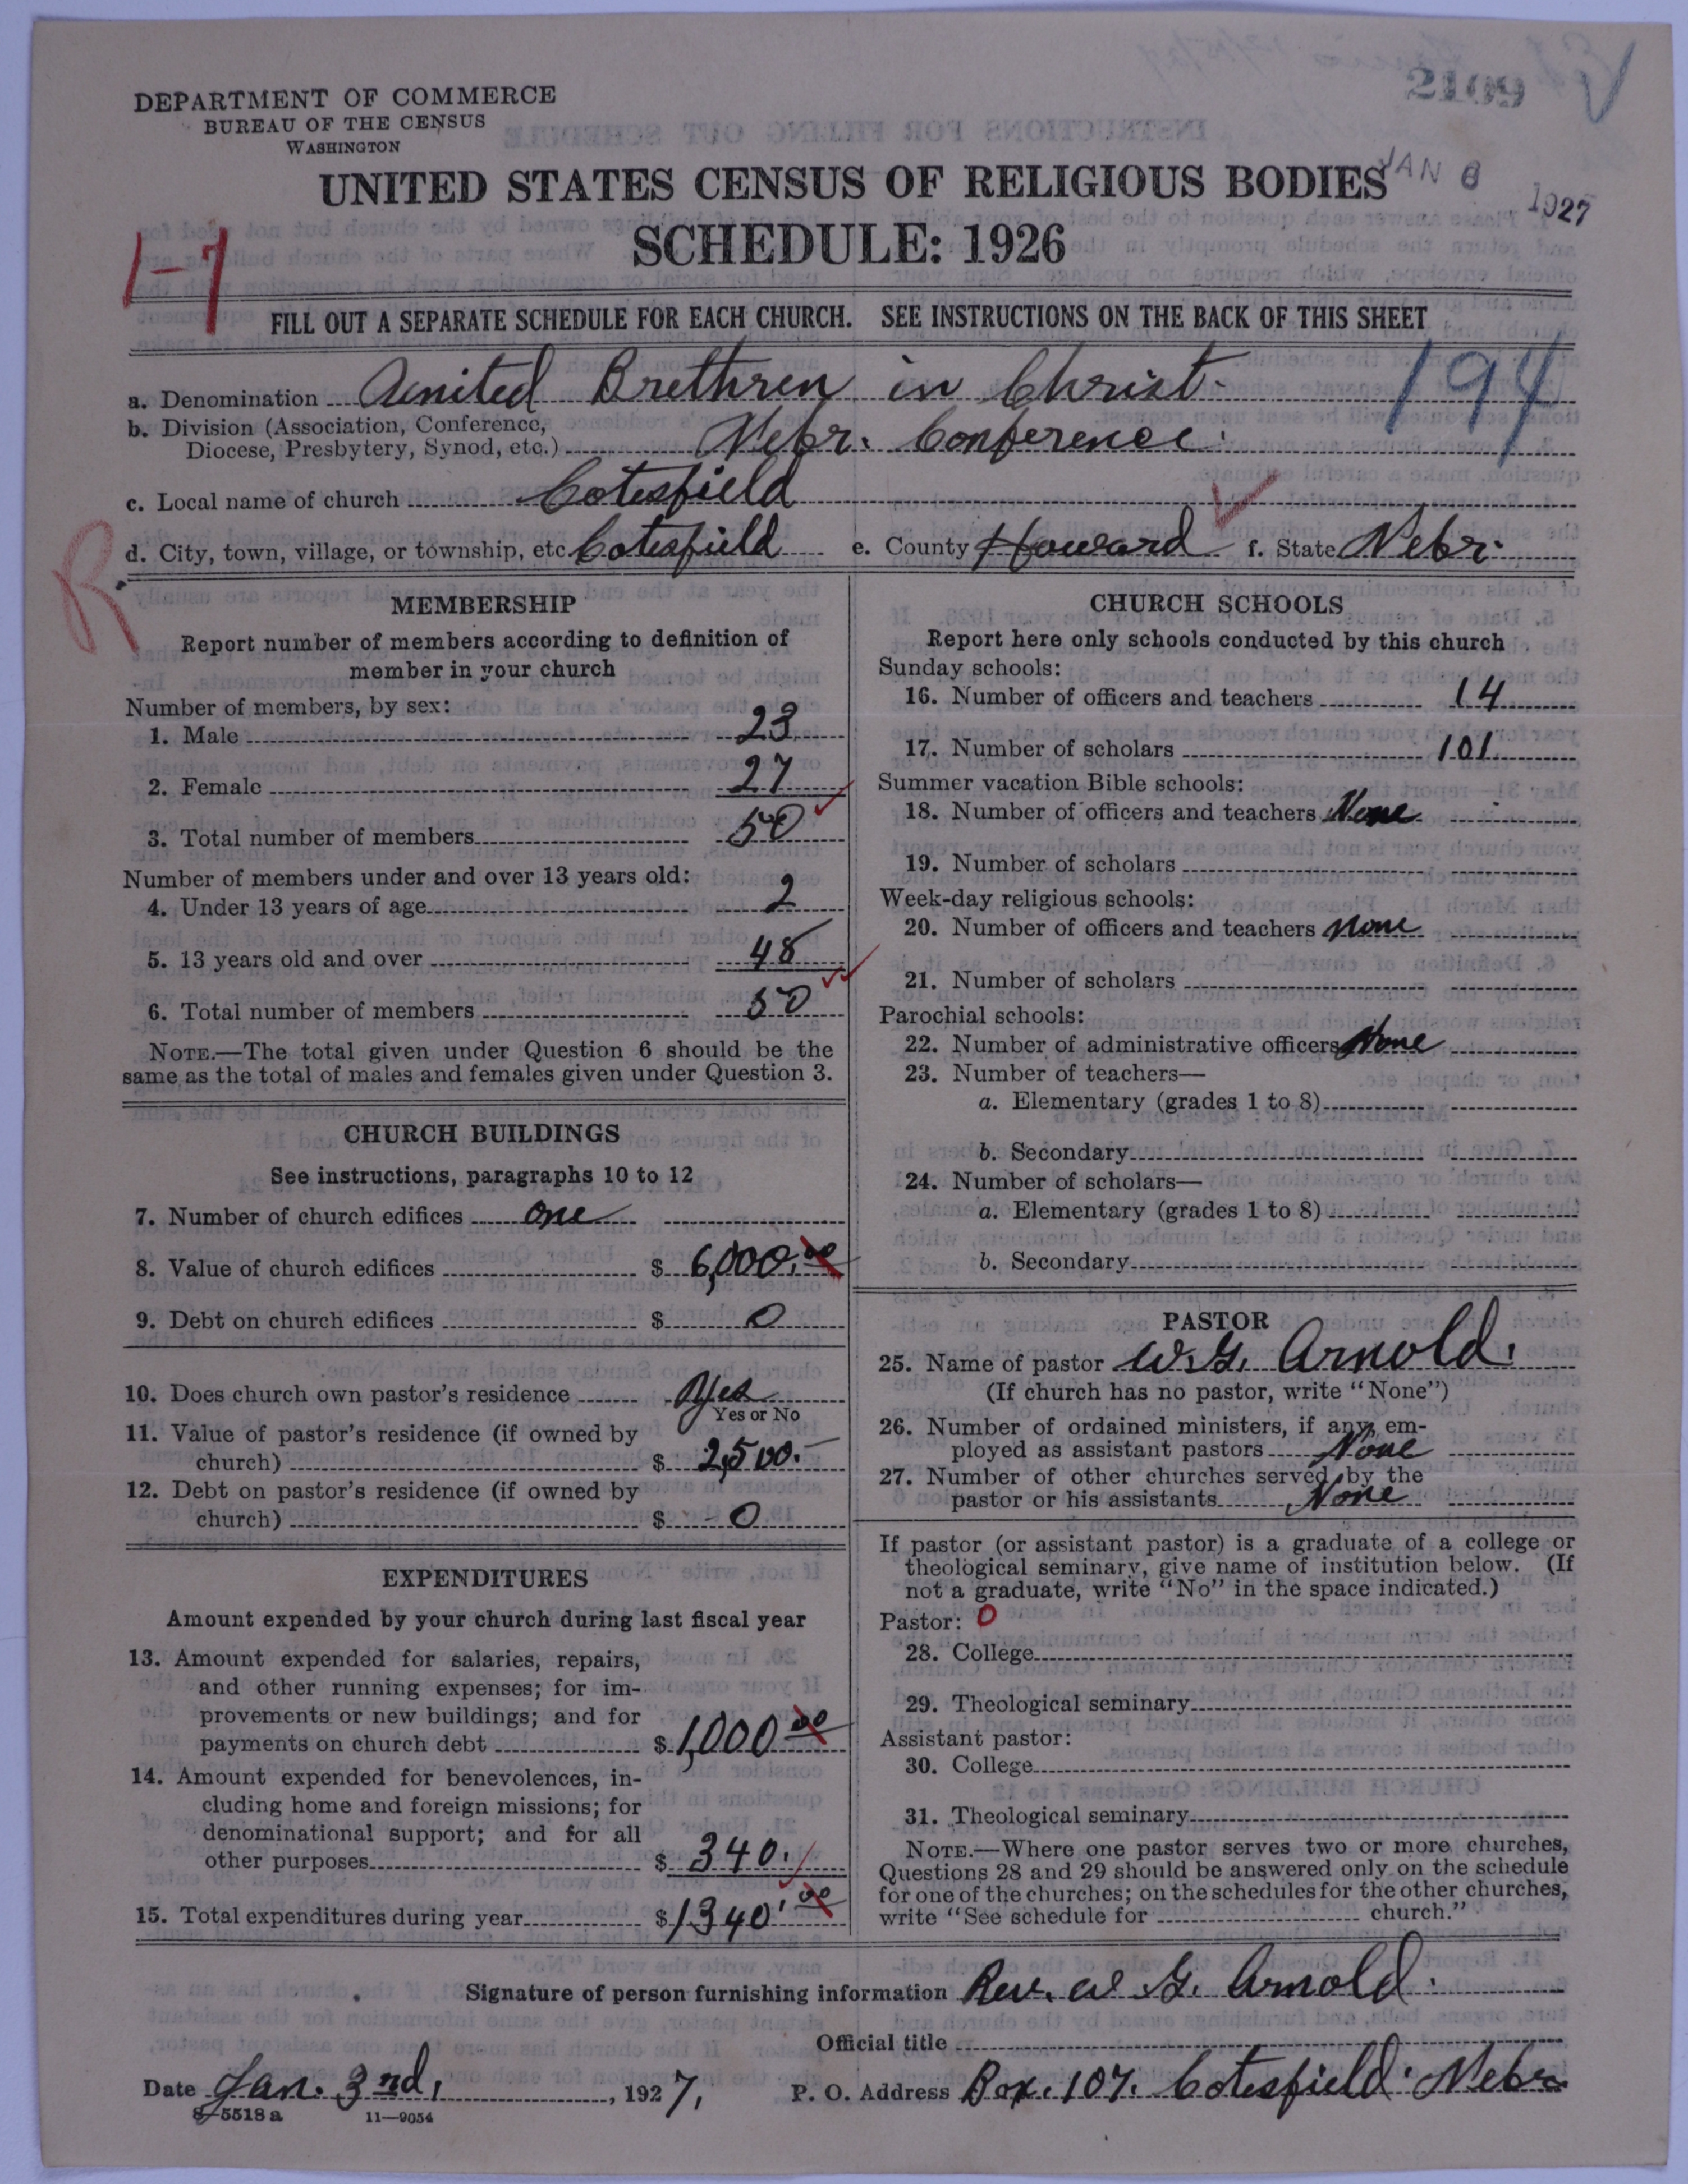 2109
DEPARTMENT OF COMMERCE
BUREAU OF THE CENSUS
WASHINGTON
UNITED STATES CENSUS OF RELIGIOUS BODIES
JAN 6 1927
SCHEDULE: 1926
1-7
FILL OUT A SEPARATE SCHEDULE FOR EACH CHURCH. SEE INSTRUCTIONS ON THE BACK OF THIS SHEET
a. Denomination United Brethren in Christ. 194
b. Division (Association, Conference,
Diocese, Presbytery, Synod, etc.) Nebr. Conference.
c. Local name of church Cotesfield
d. City, town, village, or township, etc. Cotesfield e. County Howard f. State Nebr.
R
MEMBERSHIP
Report number of members according to definition of
member in your church
Number of members, by sex:
1. Male 23
2. Female 27
3. Total number of members 50
Number of members under and over 13 years old:
4. Under 13 years of age 2
5. 13 years old and over 48
6. Total number of members 50
NOTE.—The total given under Question 6 should be the
same as the total of males and females given under Question 3.
CHURCH BUILDINGS
See instructions, paragraphs 10 to 12
7. Number of church edifices one
8. Value of church edifices $ 6,000.00
9. Debt on church edifices $ 0
10. Does church own pastor's residence Yes
Yes or No
11. Value of pastor's residence (if owned by
church) $ 2,500.—
12. Debt on pastor's residence (if owned by
church) $ - 0
EXPENDITURES
Amount expended by your church during last fiscal year
13. Amount expended for salaries, repairs,
and other running expenses; for im-
provements or new buildings; and for
payments on church debt $ 1,000 00
14. Amount expended for benevolences, in-
cluding home and foreign missions; for
denominational support; and for all
other purposes $ 340.
15. Total expenditures during year $ 1340.00
CHURCH SCHOOLS
Report here only schools conducted by this church
Sunday schools:
16. Number of officers and teachers 14
17. Number of scholars 101
Summer vacation Bible schools:
18. Number of officers and teachers None
19. Number of scholars
Week-day religious schools:
20. Number of officers and teachers none
21. Number of scholars
Parochial schools:
22. Number of administrative officers None
23. Number of teachers—
a. Elementary (grades 1 to 8)
b. Secondary
24. Number of scholars—
a. Elementary (grades 1 to 8)
b. Secondary
PASTOR
25. Name of pastor W.G. Arnold.
(If church has no pastor, write "None")
26. Number of ordained ministers, if any, em-
ployed as assistant pastors None
27. Number of other churches served by the
pastor or his assistants None
If pastor (or assistant pastor) is a graduate of a college or
theological seminary, give name of institution below. (If
not a graduate, write "No" in the space indicated.)
Pastor: 0
28. College
29. Theological seminary
Assistant pastor:
30. College
31. Theological seminary
NOTE.—Where one pastor serves two or more churches,
Questions 28 and 29 should be answered only on the schedule
for one of the churches; on the schedules for the other churches,
write "See schedule for church."
Signature of person furnishing information Rev. W G. Arnold.
Official title
Date Jan. 3rd, 1927, P. O. Address Box. 107. Cotesfield. Nebr.
8-5518 a 11—9054